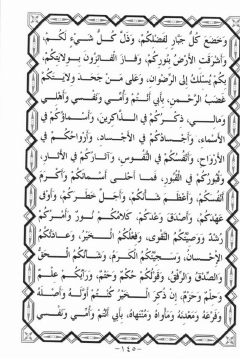 وَخَضَعَ كُلُّ جَبَّارٍ لِفَضْلِكُمْ، وَذَلَّ كُلُّ شَيْءٍ لَكُمْ،
وَأَشْرَقَتِ الْأَرْضُ بِنُورِكُمْ، وَفَازَ الْفَائِزُونَ بِوِلَايَتِكُمْ،
بِكُمْ يُسْلَكُ إِلَى الرِّضْوَانِ، وَعَلَى مَنْ جَحَدَ وِلَايَتَكُمْ
غَضَبُ الرَّحْمٰنِ، بِأَبِي أَنْتُمْ وَأُمِّي وَنَفْسِي وَأَهْلِي
وَمَالِي، ذِكْرُكُمْ فِي الذَّاكِرِينَ، وَأَسْمَاؤُكُمْ فِي
الْأَسْمَاءِ، وَأَجْسَادُكُمْ فِي الْأَجْسَادِ، وَأَرْوَاحُكُمْ فِي
الْأَرْوَاحِ، وَأَنْفُسُكُمْ فِي النُّفُوسِ، وَآثَارُكُمْ فِي الْآثَارِ،
وَقُبُورُكُمْ فِي الْقُبُورِ، فَمَا أَحْلَى أَسْمَائَكُمْ وَأَكْرَمَ
أَنْفُسَكُمْ، وَأَعْظَمَ شَأْنَكُمْ، وَأَجَلَّ خَطَرَكُمْ، وَأَوْفَى
عَهْدَكُمْ، وَأَصْدَقَ وَعْدَكُمْ، كَلَامُكُمْ نُورٌ وَأَمْرُكُمْ
رُشْدٌ وَوَصِيَّتُكُمُ التَّقْوَى، وَفِعْلُكُمُ الْخَيْرُ، وَعَادَتُكُمُ
الْإِحْسَانُ، وَسَجِيَّتُكُمُ الْكَرَمُ، وَشَأْنُكُمُ الْحَقُّ
وَالصِّدْقُ وَالرِّفْقُ، وَقَوْلُكُمْ حُكْمٌ وَحَتْمٌ، وَرَأْيُكُمْ عِلْمٌ
وَحِلْمٌ وَحَزْمٌ، إِنْ ذُكِرَ الْخَيْرُ كُنْتُمْ أَوَّلَهُ وَأَصْلَهُ
وَفَرْعَهُ وَمَعْدِنَهُ وَمَأْوَاهُ وَمُنْتَهَاهُ، بِأَبِي أَنْتُمْ وَأُمِّي وَنَفْسِي
-١٤٥-